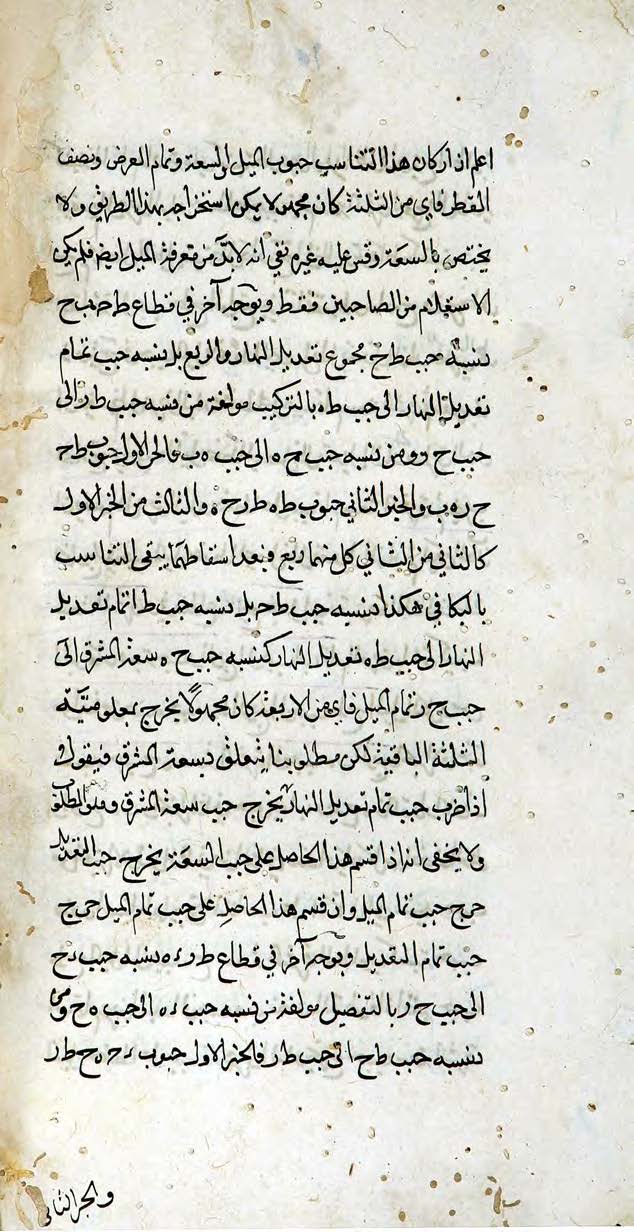 اعلم ان اركان هذا التناسب جيوب الميل والسعة وتمام العرض ونصف
القطر فاي من الثلثة كان مجهولا يمكن استخراجه بهذا الطريق ولا
يختص بالسعة وقس عليه غيره نعم انه لابد من معرفة الميل ايضا فلم يكن
الاستعلام من الصاحبين فقط وبوجه آخر في قطاع
نسبة جيب ط ح مجموع تعديل النهار والربع بل نسبه جيب تمام
تعديل النهار الى جيب ط ه بالتركيب مولفة من نسبه جيب ط ر الى
جيب ح ر ومن نسبه جيب ح ه الى جيب ه ب فالحيز الاول جيوب ط ح
ح ر ه ب والحيز الثاني جيوب ط ه ط ر ح ه والثالث من الحيز الاول
كالثاني من الثاني كل منهما ربع وبعد اسقاطهما يبقى التناسب
بالبكافي هكذا نسبه جيب ط ح بل نسبه جيب ط ا تمام تعديل
النهار الى جيب ط ه تعديل النهار كنسبه جيب ح ه سعة المشرق الى
جيب ح ر تمام الميل فاي من الاربعة كان مجهولا يخرج بمعلومية
الثلثة الباقية لكن مطلوبنا يتعلق بسعة المشرق فيقول
اذا ضرب جيب تمام تعديل النهار يخرج جيب سعة المشرق وهو المطلوب
ولا يخفى انه اذا قسم هذا الحاصل على جيب السعة يخرج جيب التعديل
خرج جيب تمام الميل وان قسم هذا الحاصل على جيب تمام الميل خرج
جيب تمام التعديل وبوجه آخر في قطاع ط ر ء ه نسبه جيب ء ح
الى جيب ح ر بالتفصيل مولفة من نسبه جيب ء ه الى جيب ه ح ومن
نسبه جيب ط ح الى جيب ط ر فالحيز الاول جيوب ء ح ه ح ط ر
والحيز الثاني